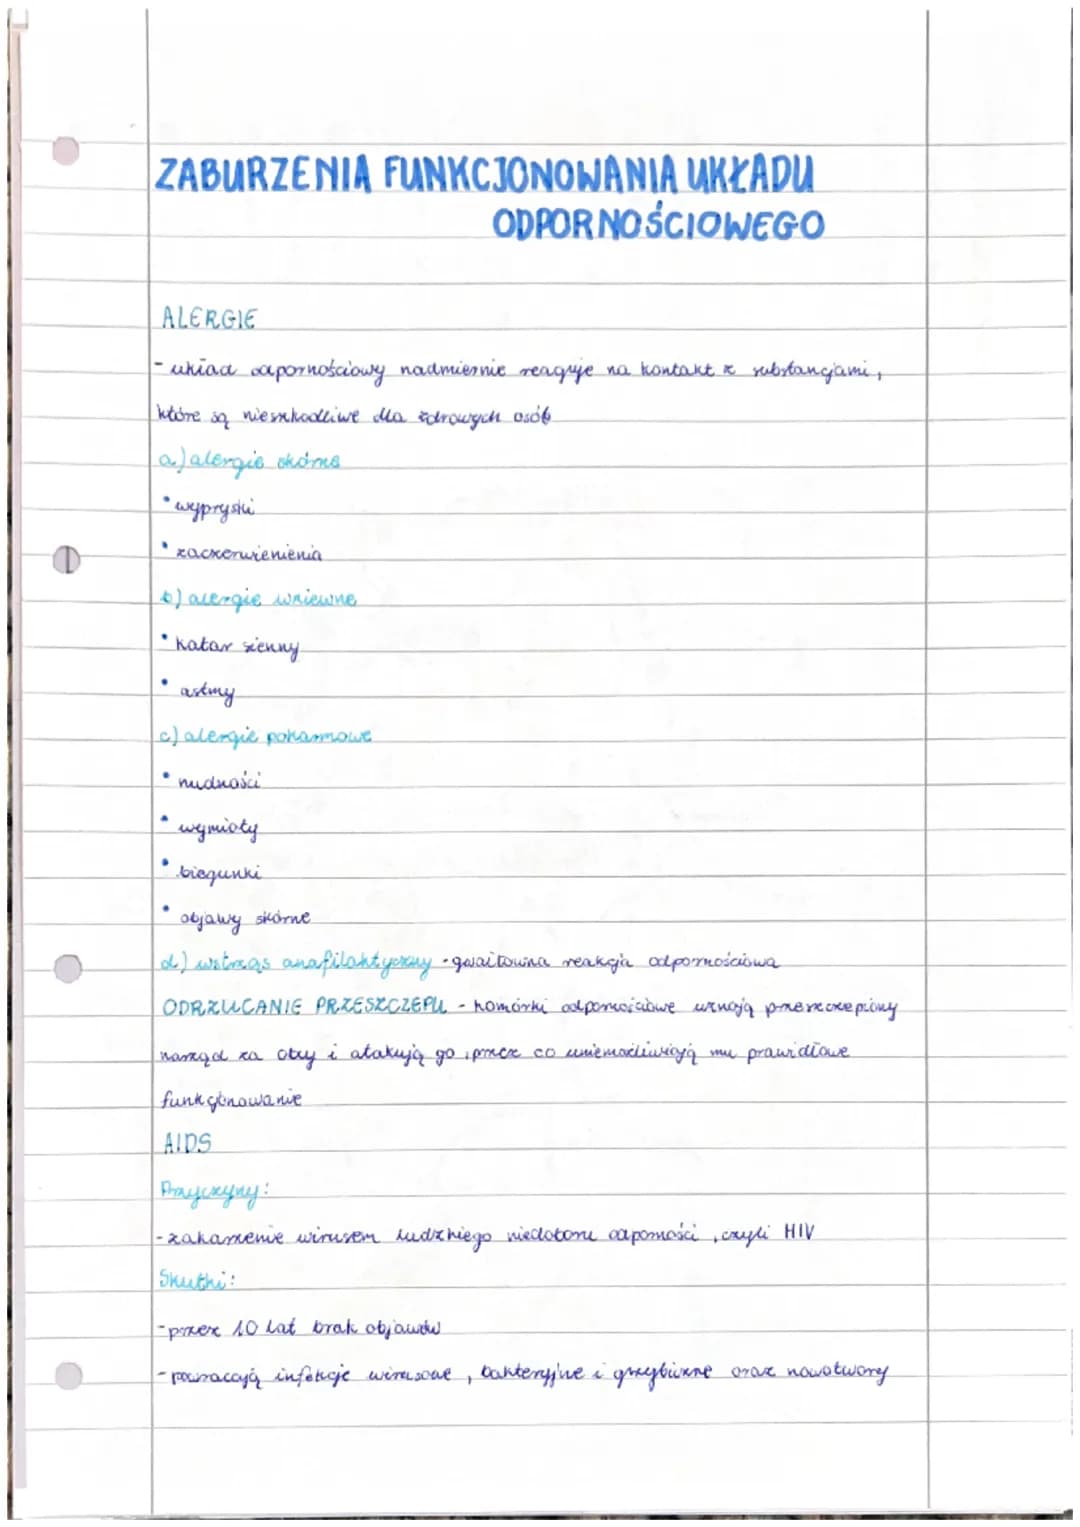 ZABURZENIA FUNKCJONOWANIA UKŁADU
ODPORNOŚCIOWEGO
ALERGIE
- układ odpornościowy nadmiernie reaguje na kontakt z substancjami,
które są nieszkodliwe dla zdrowych osób
a) alergie skórne
• wypryski
• zaczerwienienia
b) alergie wziewne
• katar sienny
• astmy
c) alergie pokarmowe
• nudności
• wymioty
• biegunki
• objawy skórne
d) wstrząs anafilaktyczny - gwałtowna reakcja odpornościowa
ODRZUCANIE PRZESZCZEPU - komórki odpornościowe uznają przeszczepiony
narząd za obcy i atakują go, przez co uniemożliwiają mu prawidłowe
funkcjonowanie
AIDS
Przyczyny:
- zakażenie wirusem ludzkiego niedoboru odporności, czyli HIV
Skutki:
- przez 10 lat brak objawów
- powracają infekcje wirusowe, bakteryjne i grzybiczne oraz nowotwory